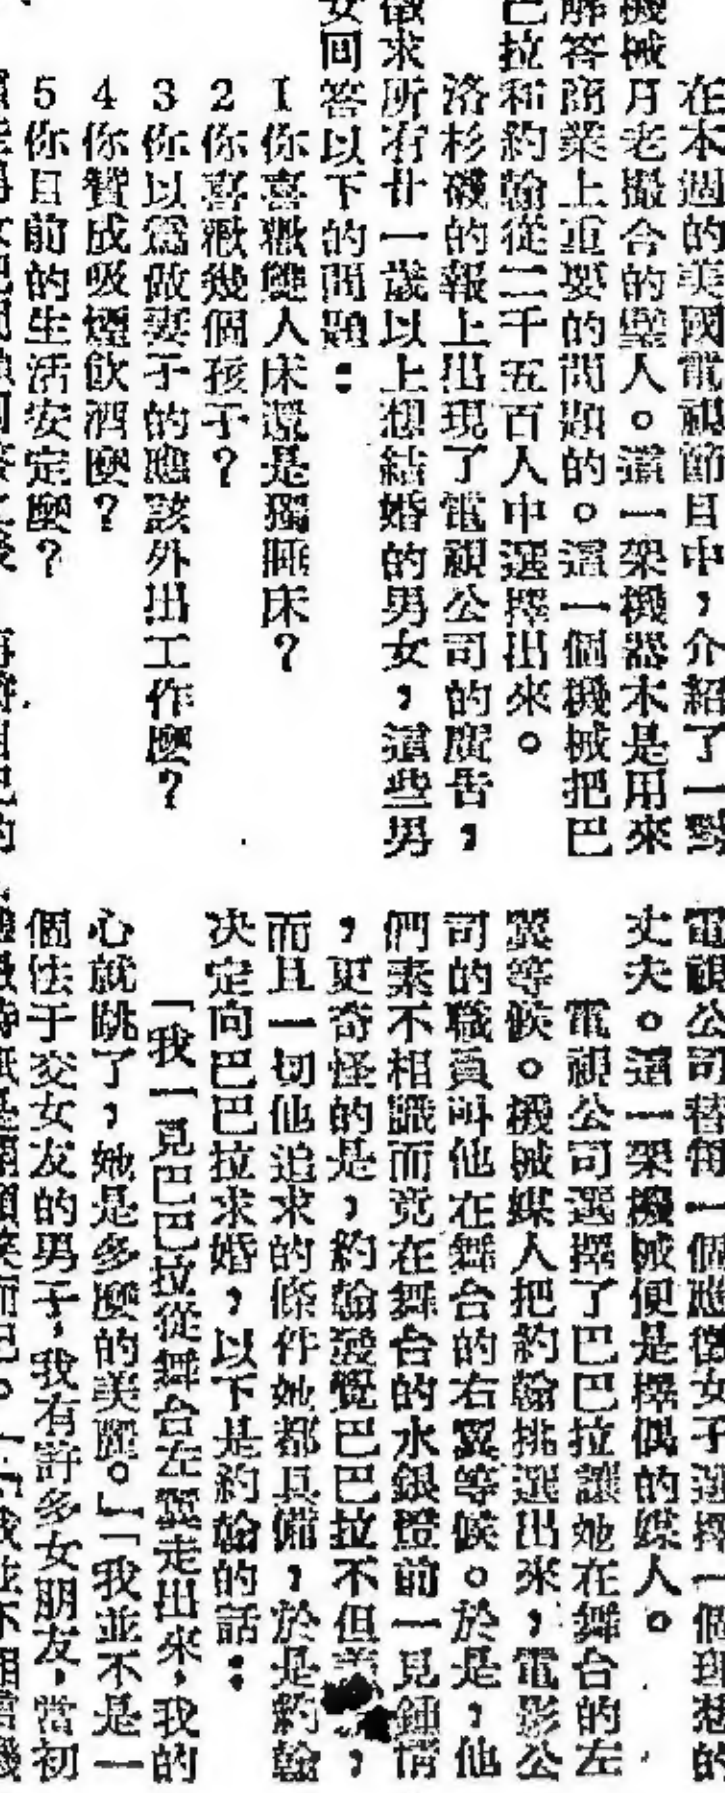 在本週的美國電視節目中，介紹了一對
機械月老撮合的璧人。這一架機器本是用來
解答商業上重要的問題的。這一個機械把巴
巴拉和約翰從二千五百人中選擇出來。
洛杉磯的報上出現了電視公司的廣告，
徵求所有廿一歲以上想結婚的男女，這些男
女回答以下的問題：
1你喜歡雙人床還是獨睡床？
2你喜歡幾個孩子？
3你以爲做妻子的應該外出工作麼？
4你贊成吸煙飲酒麼？
5你目前的生活安定麼？
電視公司替每一個應徵女子選擇一個理想的
丈夫。這一架機械便是擇偶的媒人。
電視公司選擇了巴巴拉讓她在舞台的左
翼等候。機械媒人把約翰挑選出來，電影公
司的職員叫他在舞台的右翼等候。於是，他
們素不相識而竟在舞台的水銀燈前一見鍾情
，更奇怪的是，約翰發覺巴巴拉不但，
而且一切他追求的條件她都具備，於是約翰
决定向巴巴拉求婚，以下是約翰的話：
「我一見巴巴拉從舞台左翼走出來，我的
心就跳了，她是多麼的美麗。」「我並不是一
個怯于交女友的男子，我有許多女朋友，當初